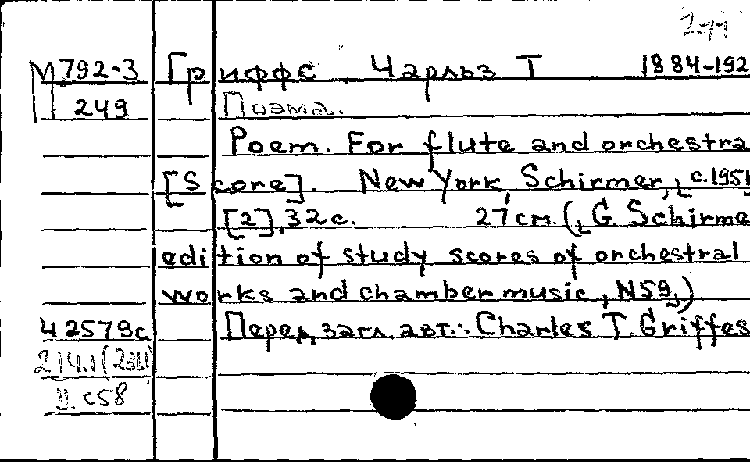 М792-3 Гриффс Чарльз Т 1884-192
249 Поэма.
Poem. For flute and orchestra
[Score]. New York, Schirmer, c.1951
[2], 32 с. 27 см (G. Schirme
edition of study scores of orchestral
works and chamber music, N59,)
42579с Перед загл. авт.: Charles T. Griffes
с58